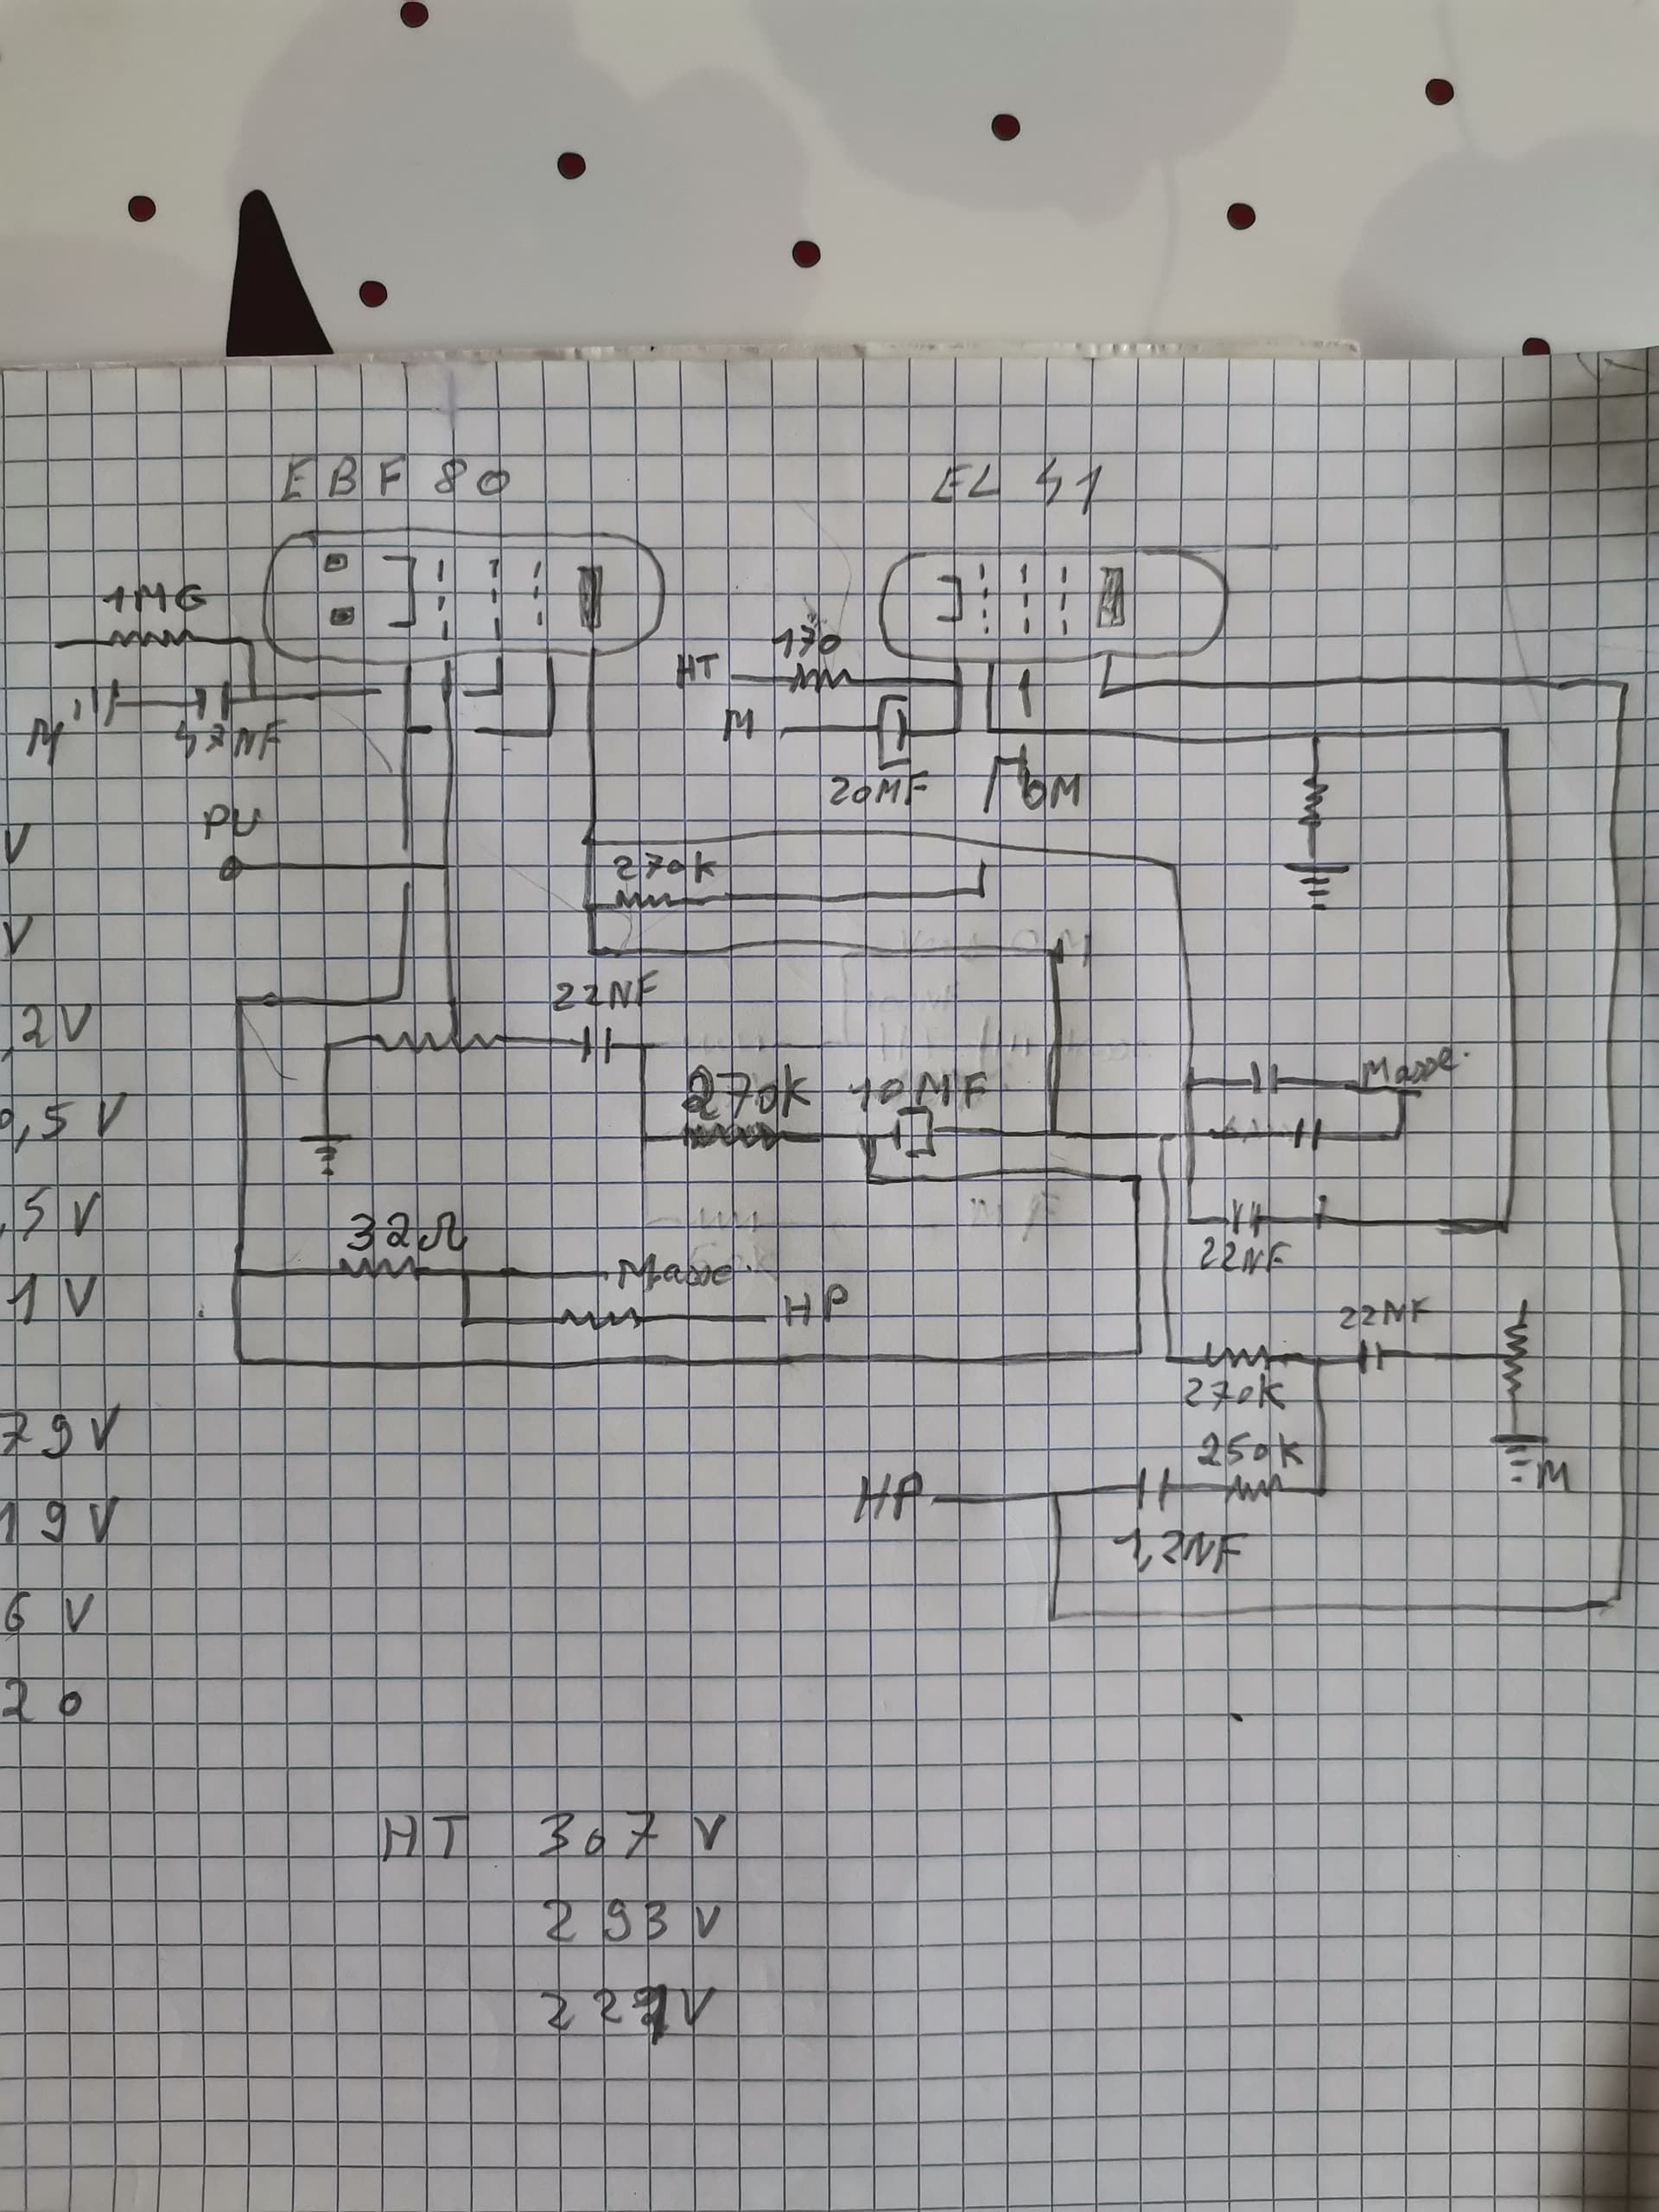 EBF 80
EL 41
1MG
170
HT
M
M
47NF
20MF
M
PU
V
270K
V
22NF
,2V
270K 10MF
Masse.
0,5 V
,5 V
32Ω
22NF
Masse.
1 V
HP
22NF
270K
79 V
250K
M
HP
19 V
1,2NF
6 V
20
HT 307 V
293 V